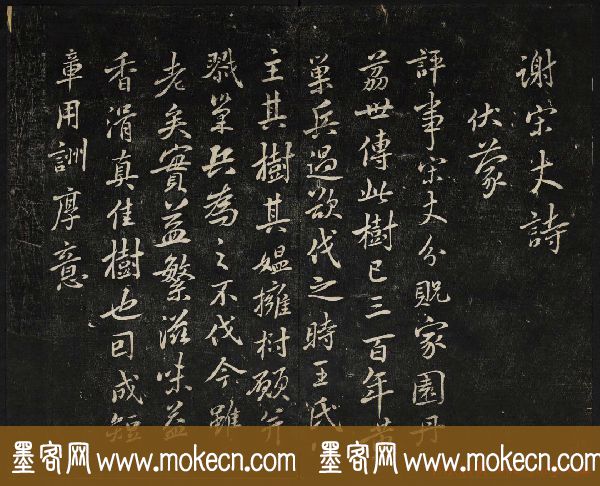 谢宋大詩
伏蒙
評事宋大分貺家園丹
荔世傳此樹已三百年黄
巢兵過欲伐之時王氏
主其樹其媪擁樹願并
戮巢兵為之不伐今雖
老矣實益繁滋味益
香滑真佳樹也因成短
章用詶厚意
墨客网 www.mokecn.com 墨客网 www.mokecn.com